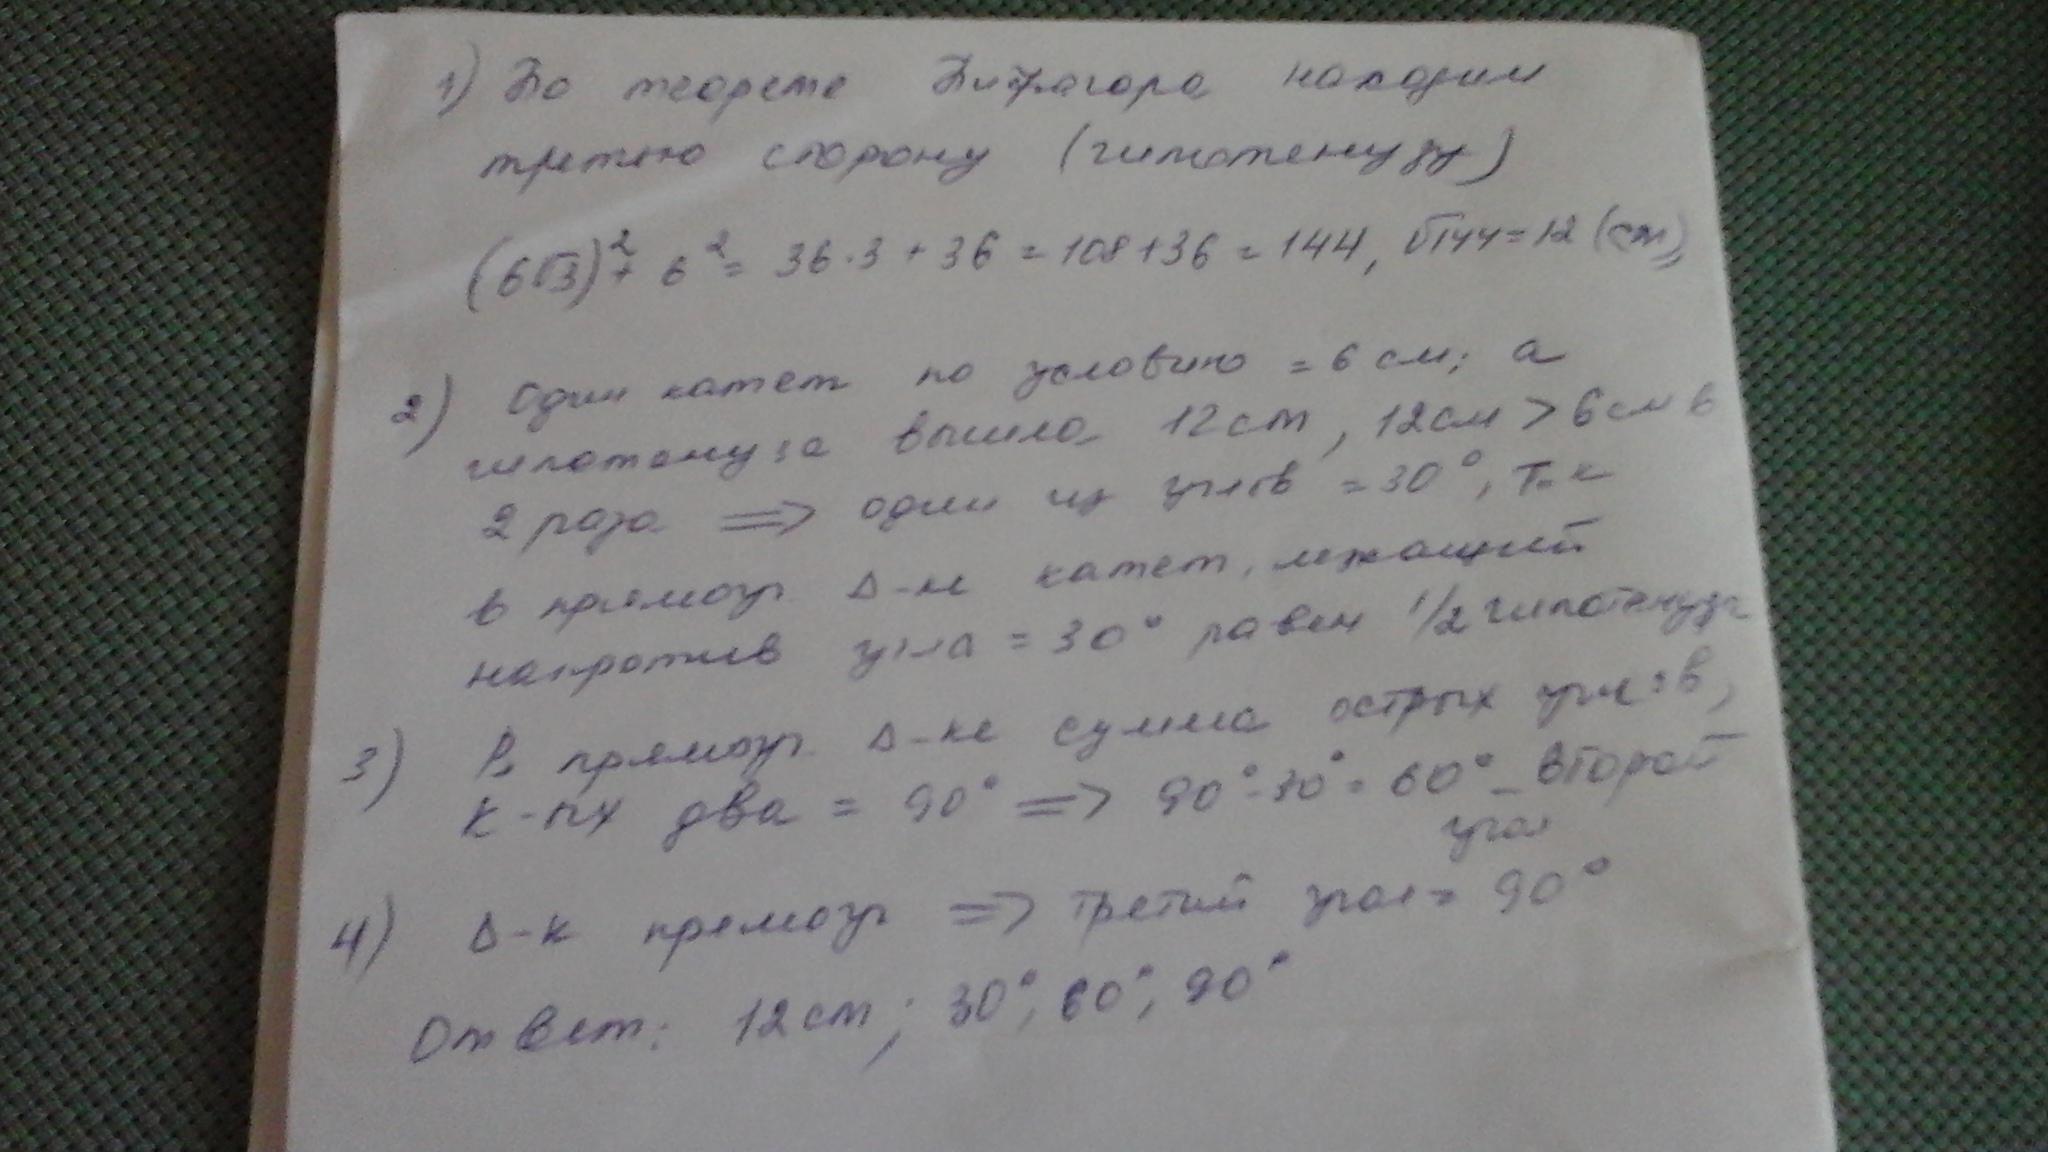 1) По теореме Пифагора находим
третью сторону (гипотенузу)
(6√3)² + 6² = 36·3 + 36 = 108+36 = 144, √144 = 12 (cm)
2) Один катет по условию = 6 см; а
гипотенуза вышла 12cm, 12см > 6см в
2 раза => один из углов = 30°, т.к
в прямоуг. Δ-ке катет, лежащий
напротив угла = 30° равен 1/2 гипотенузы
3) В прямоуг. Δ-ке сумма острых углов,
к-ых два = 90° => 90°-30° = 60° - второй
угол
4) Δ-к прямоуг => третий угол = 90°
Ответ: 12cm; 30°, 60°, 90°